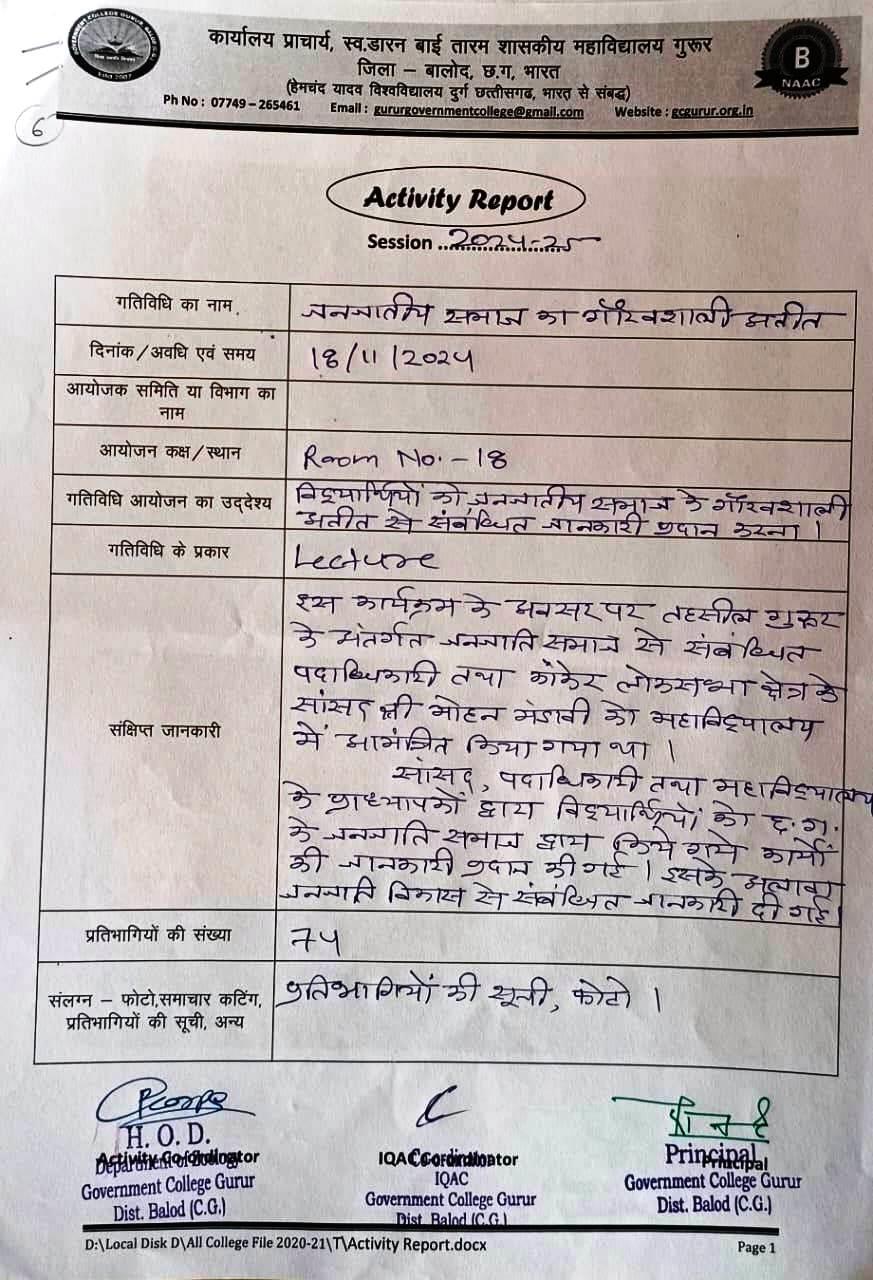 6
GOVERNMENT COLLEGE GURUR
Estd 2007
कार्यालय प्राचार्य, स्व.डारन बाई तारम शासकीय महाविद्यालय गुरूर
जिला – बालोद, छ.ग, भारत
(हेमचंद यादव विश्वविद्यालय दुर्ग छत्तीसगढ, भारत से संबद्ध)
Ph No : 07749 – 265461 Email : gururgovernmentcollege@gmail.com Website : gcgurur.org.in
B
NAAC
Activity Report
Session ..2024-25
गतिविधि का नाम जनजातीय समाज का गौरवशाली अतीत
दिनांक/अवधि एवं समय 18/11/2024
आयोजक समिति या विभाग का
नाम
आयोजन कक्ष/स्थान Room No. - 18
गतिविधि आयोजन का उद्देश्य विद्यार्थियों को जनजातीय समाज के गौरवशाली
अतीत से संबंधित जानकारी प्रदान करना।
गतिविधि के प्रकार Lecture
संक्षिप्त जानकारी इस कार्यक्रम के अवसर पर तहसील गुरूर
के अंतर्गत जनजाति समाज से संबंधित
पदाधिकारी तथा कांकेर लोकसभा क्षेत्र के
सांसद श्री मोहन मंडावी को महाविद्यालय
में आमंत्रित किया गया था।
सांसद, पदाधिकारी तथा महाविद्यालय
के प्राध्यापकों द्वारा विद्यार्थियों को छ.ग.
के जनजाति समाज द्वारा किये गये कार्यों
की जानकारी प्रदान की गई। इसके अलावा
जनजाति विकास से संबंधित जानकारी दी गई।
प्रतिभागियों की संख्या 74
संलग्न – फोटो,समाचार कटिंग, प्रतिभागियों की सूची, फोटो।
प्रतिभागियों की सूची, अन्य
H. O. D.
Activity Co-ordinator IQAC Coordinator Principal
Department of Zoology IQAC Principal
Government College Gurur Government College Gurur Government College Gurur
Dist. Balod (C.G.) Dist. Balod (C.G.) Dist. Balod (C.G.)
D:\Local Disk D\All College File 2020-21\T\Activity Report.docx Page 1